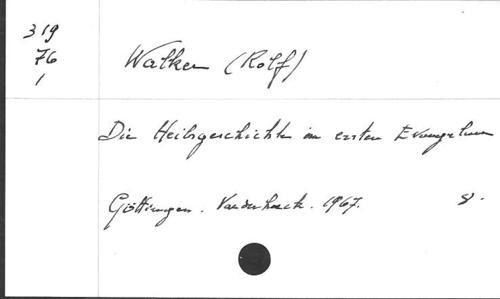 319
76
1
Walker (Rolf)
Die Heilsgeschichte im ersten Evangelium
Göttingen. Vandenhoeck. 1967. 8.